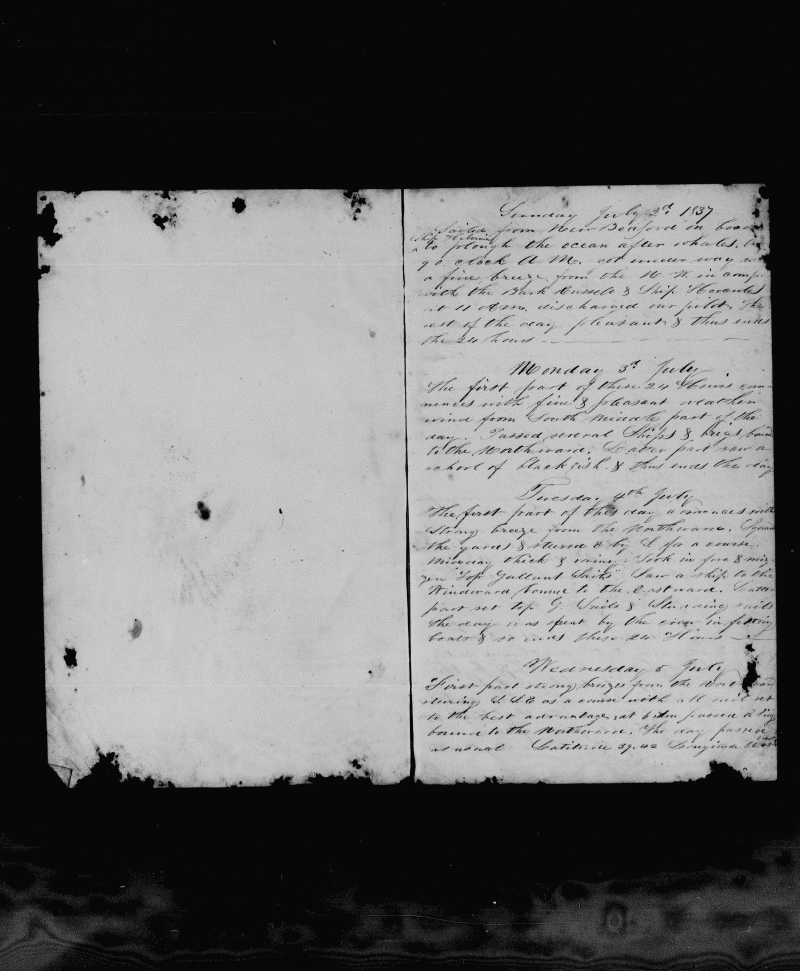 Sunday July 2d 1837
Sailed from New Bedford on board
Ship
to plough the ocean after whales, by
9 o clock A M. got under way
a fine breeze from the N. W. in comp
with the Bark & Ship Hercules
at 11 A m. discharged our pilot. The
rest of the day pleasant & thus ends
the 24 hours
Monday 3d July
The first part of these 24 Hours com-
mences with fine & pleasant weather
wind from South Middle part of the
day. Passed several Ships & brigs bound
to the Northward. Later part saw a
school of blackfish & thus ends the day
Tuesday 4th July
The first part of this day commences with
Strong breeze from the Northward. Squared
the yards & steered by for a course
Midday thick & rainy. Took in fore & miz-
zen Top Gallant Sails Saw a ship to the
Windward bound to the Eastward. Latter
part set top G. Sails & Studding sails
the day was spent by the crew in fitting
boats & so ends these 24 Hours
Wednesday 5 July
First part strong breezes from the
steering S.S.E as a course with all sail set
to the best advantage, at passed a brig
bound to the Northward. The day passed
as usual Latitude 39.42 Longitude